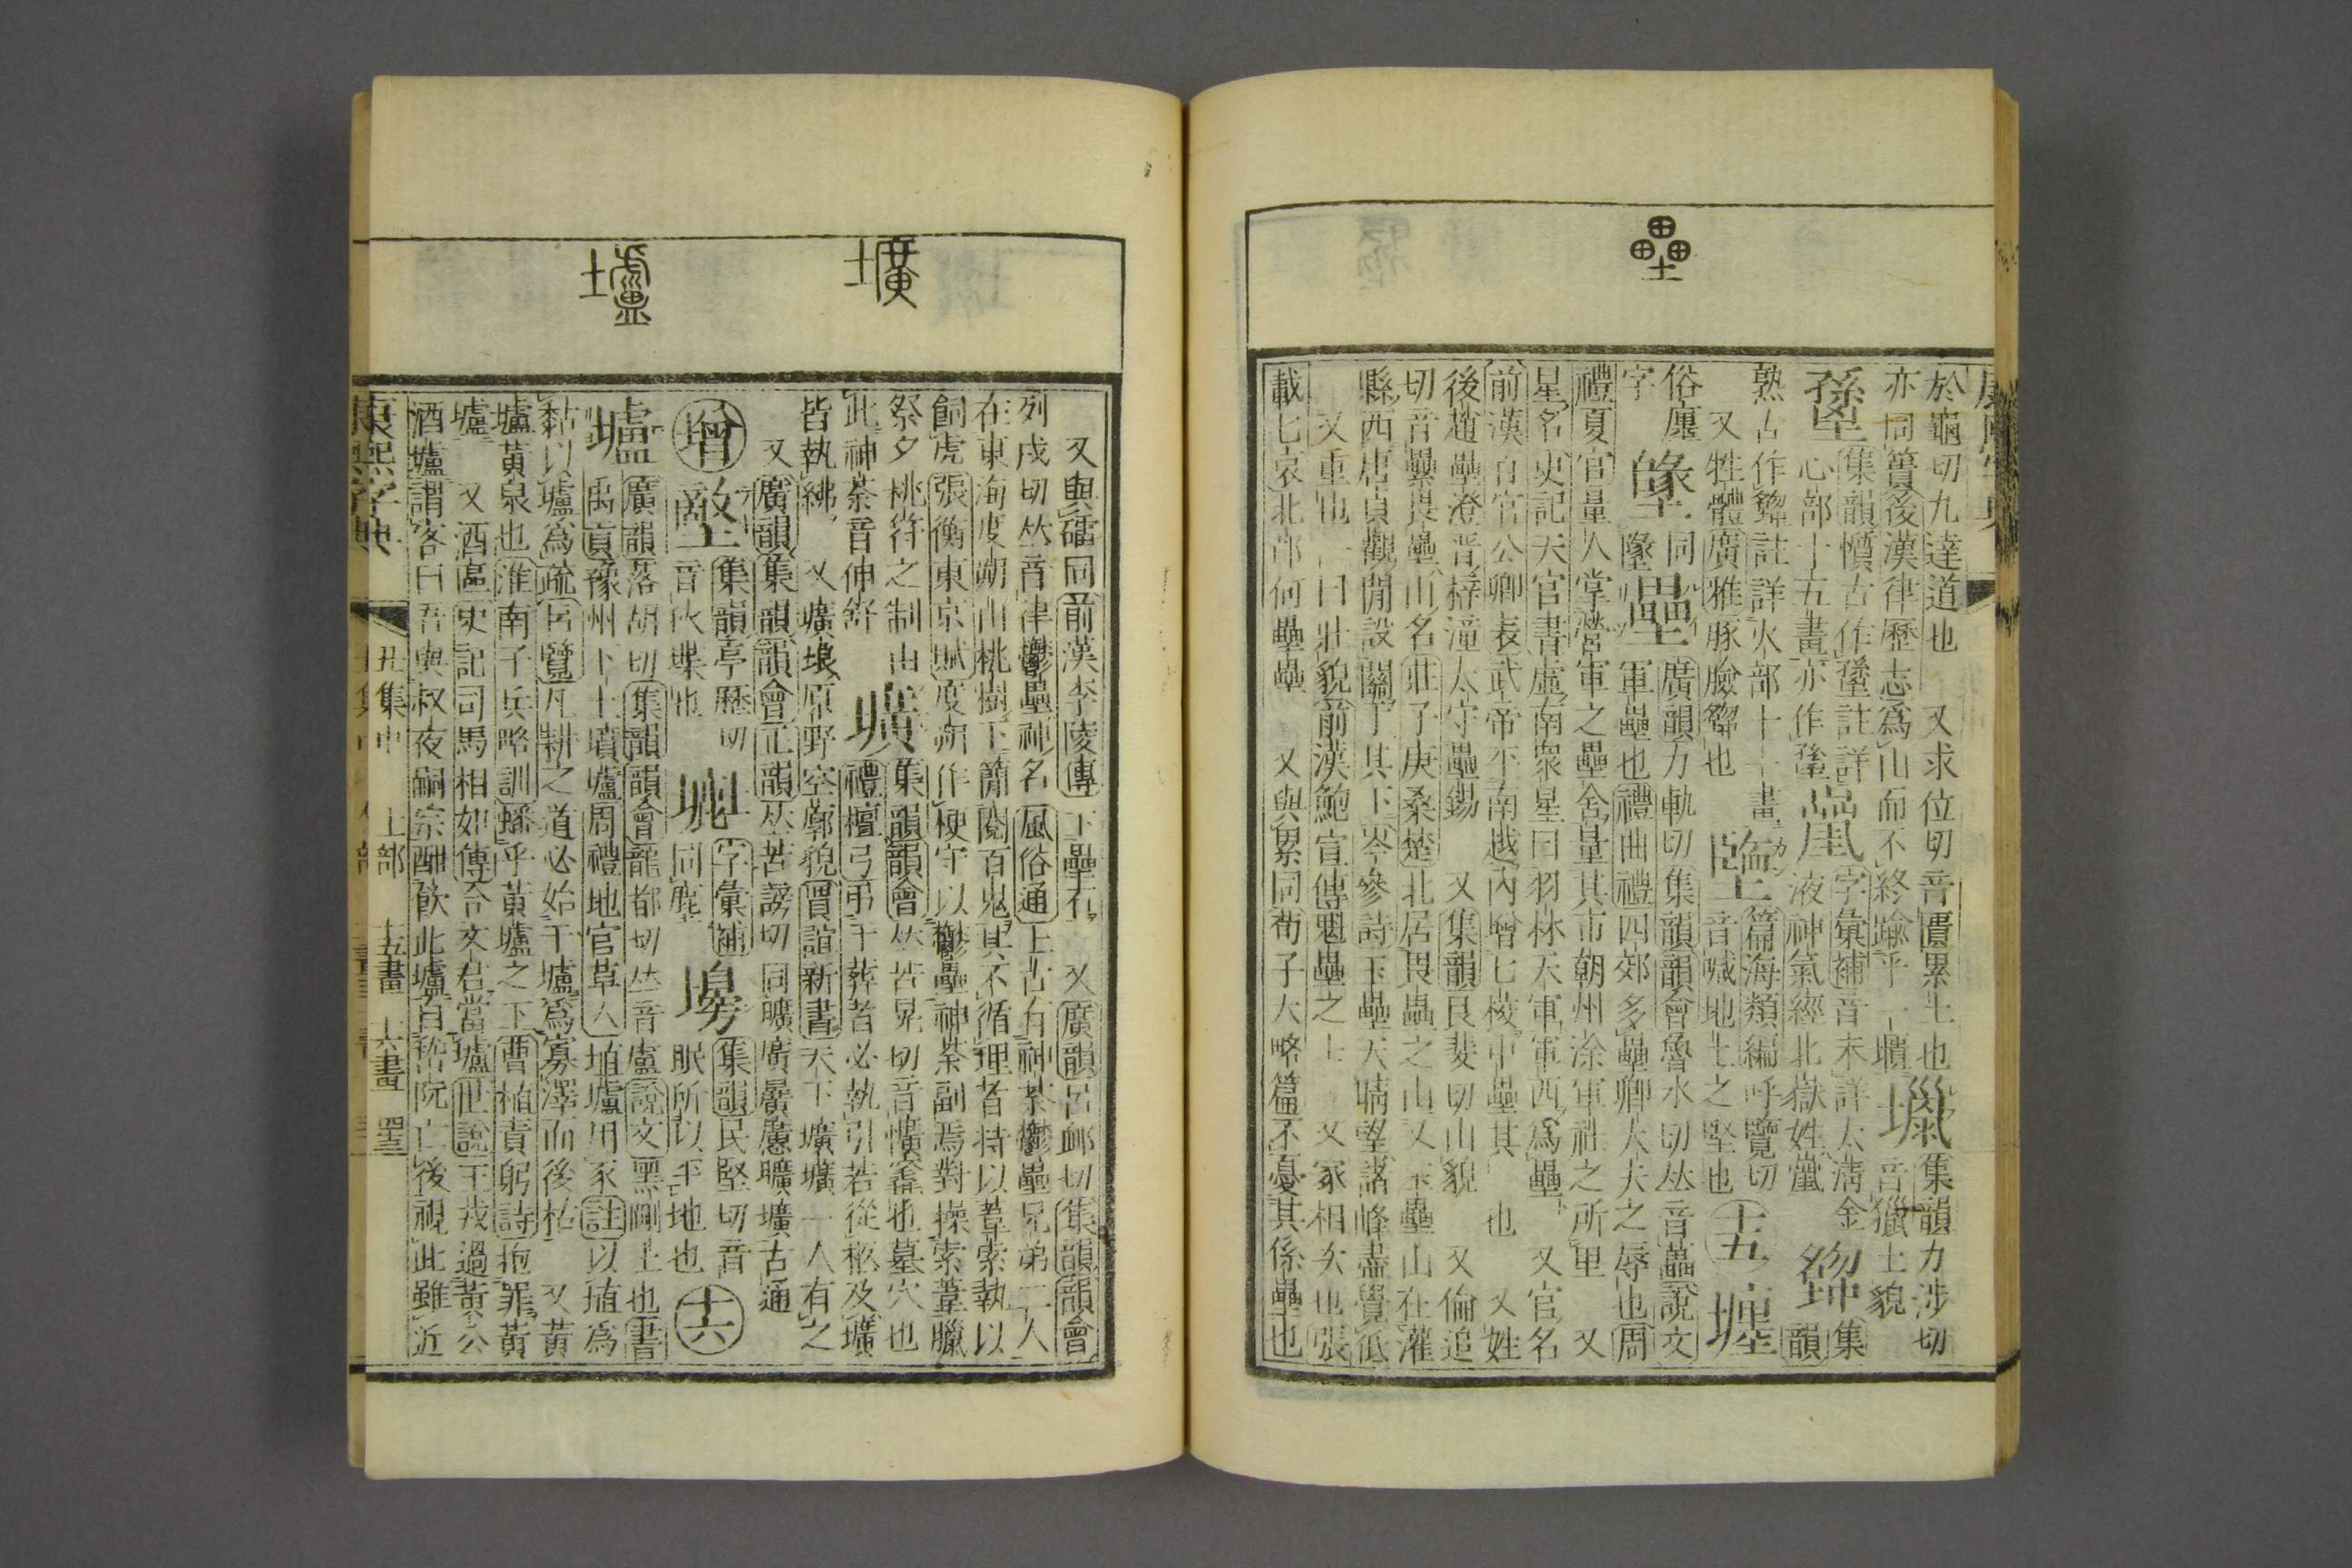 壘
於龜切九達道也 又求位切音匱累土也
亦同簣後漢律歷志爲山而不終踰乎一壝 音獵土貌 集韻力涉切
集韻憤古作 註詳
心部十五畫亦作 液神氣經北嶽姓 字彙補音未詳太淸金 集韻
熟古作 註詳火部十一畫 音喊地土之堅也 篇海類編呼覽切
又牲體廣雅豚臉 也 十五 壥
俗廛字 墬同 壘 廣韻力軌切集韻韻會魯水切𠀤音藟說文
軍壘也禮曲禮四郊多壘卿大夫之辱也周
禮夏官量人掌營軍之壘舍量其市朝州涂軍社之所里 又
星名史記天官書虛南衆星曰羽林天軍軍西爲壘 又官名
前漢百官公卿表武帝平南越內增七校中壘其一也 又姓
後趙壘澄晉梓潼太守壘錫 又集韻艮斐切山貌 又倫追
切音纍畏壘山名莊子庚桑楚北居畏壘之山又玉壘山在灌
縣西唐貞觀閒設關于其下岑參詩玉壘天晴望諸峰盡覺低
又重也一曰壯貌前漢鮑宣傳魁壘之士 又冢相次也張
載七哀北邙何壘壘 又與累同荀子大略篇不憂其係壘也
壙
壚
又與礧同前漢李陵傳下壘石 又廣韻呂䘏切集韻韻會
列戌切𠀤音律鬱壘神名風俗通上古有神荼鬱壘兄弟二人
在東海度朔山桃樹下簡閱百鬼其不循理者持以葦索執以
飼虎張衡東京賦度朔作梗守以鬱壘神荼副焉對操索葦臘
祭夕桃符之制由此神荼音伸舒 壙 集韻韻會𠀤苦晃切音懭窀也墓穴也
禮檀弓弔于葬者必執引若從柩及壙
皆執紼 又壙埌原野空廓貌賈誼新書天下壙壙一人有之
又廣韻集韻韻會正韻𠀤苦謗切同曠廣曠壙古通
增 墼 集韻亭歷切音狄堞也 字彙補同塵 集韻民堅切音眠所以平地也 十六
壚 廣韻落胡切集韻韻會龍都切𠀤音盧說文黑剛土也書
禹貢豫州下土墳壚周禮地官草人埴壚用豕註以埴爲
黏以壚爲疏呂覽凡耕之道必始于壚爲寡澤而後枯 又黃
壚黃泉也淮南子兵略訓蟠乎黃壚之下曹植責躬詩抱罪黃
壚 又酒區史記司馬相如傳令文君當壚世說王戎過黃公
酒壚謂客曰吾與叔夜嗣宗酣飮此壚自嵇阮亡後視此雖近
康熙字典 丑集中 土部 十五畫 十六畫